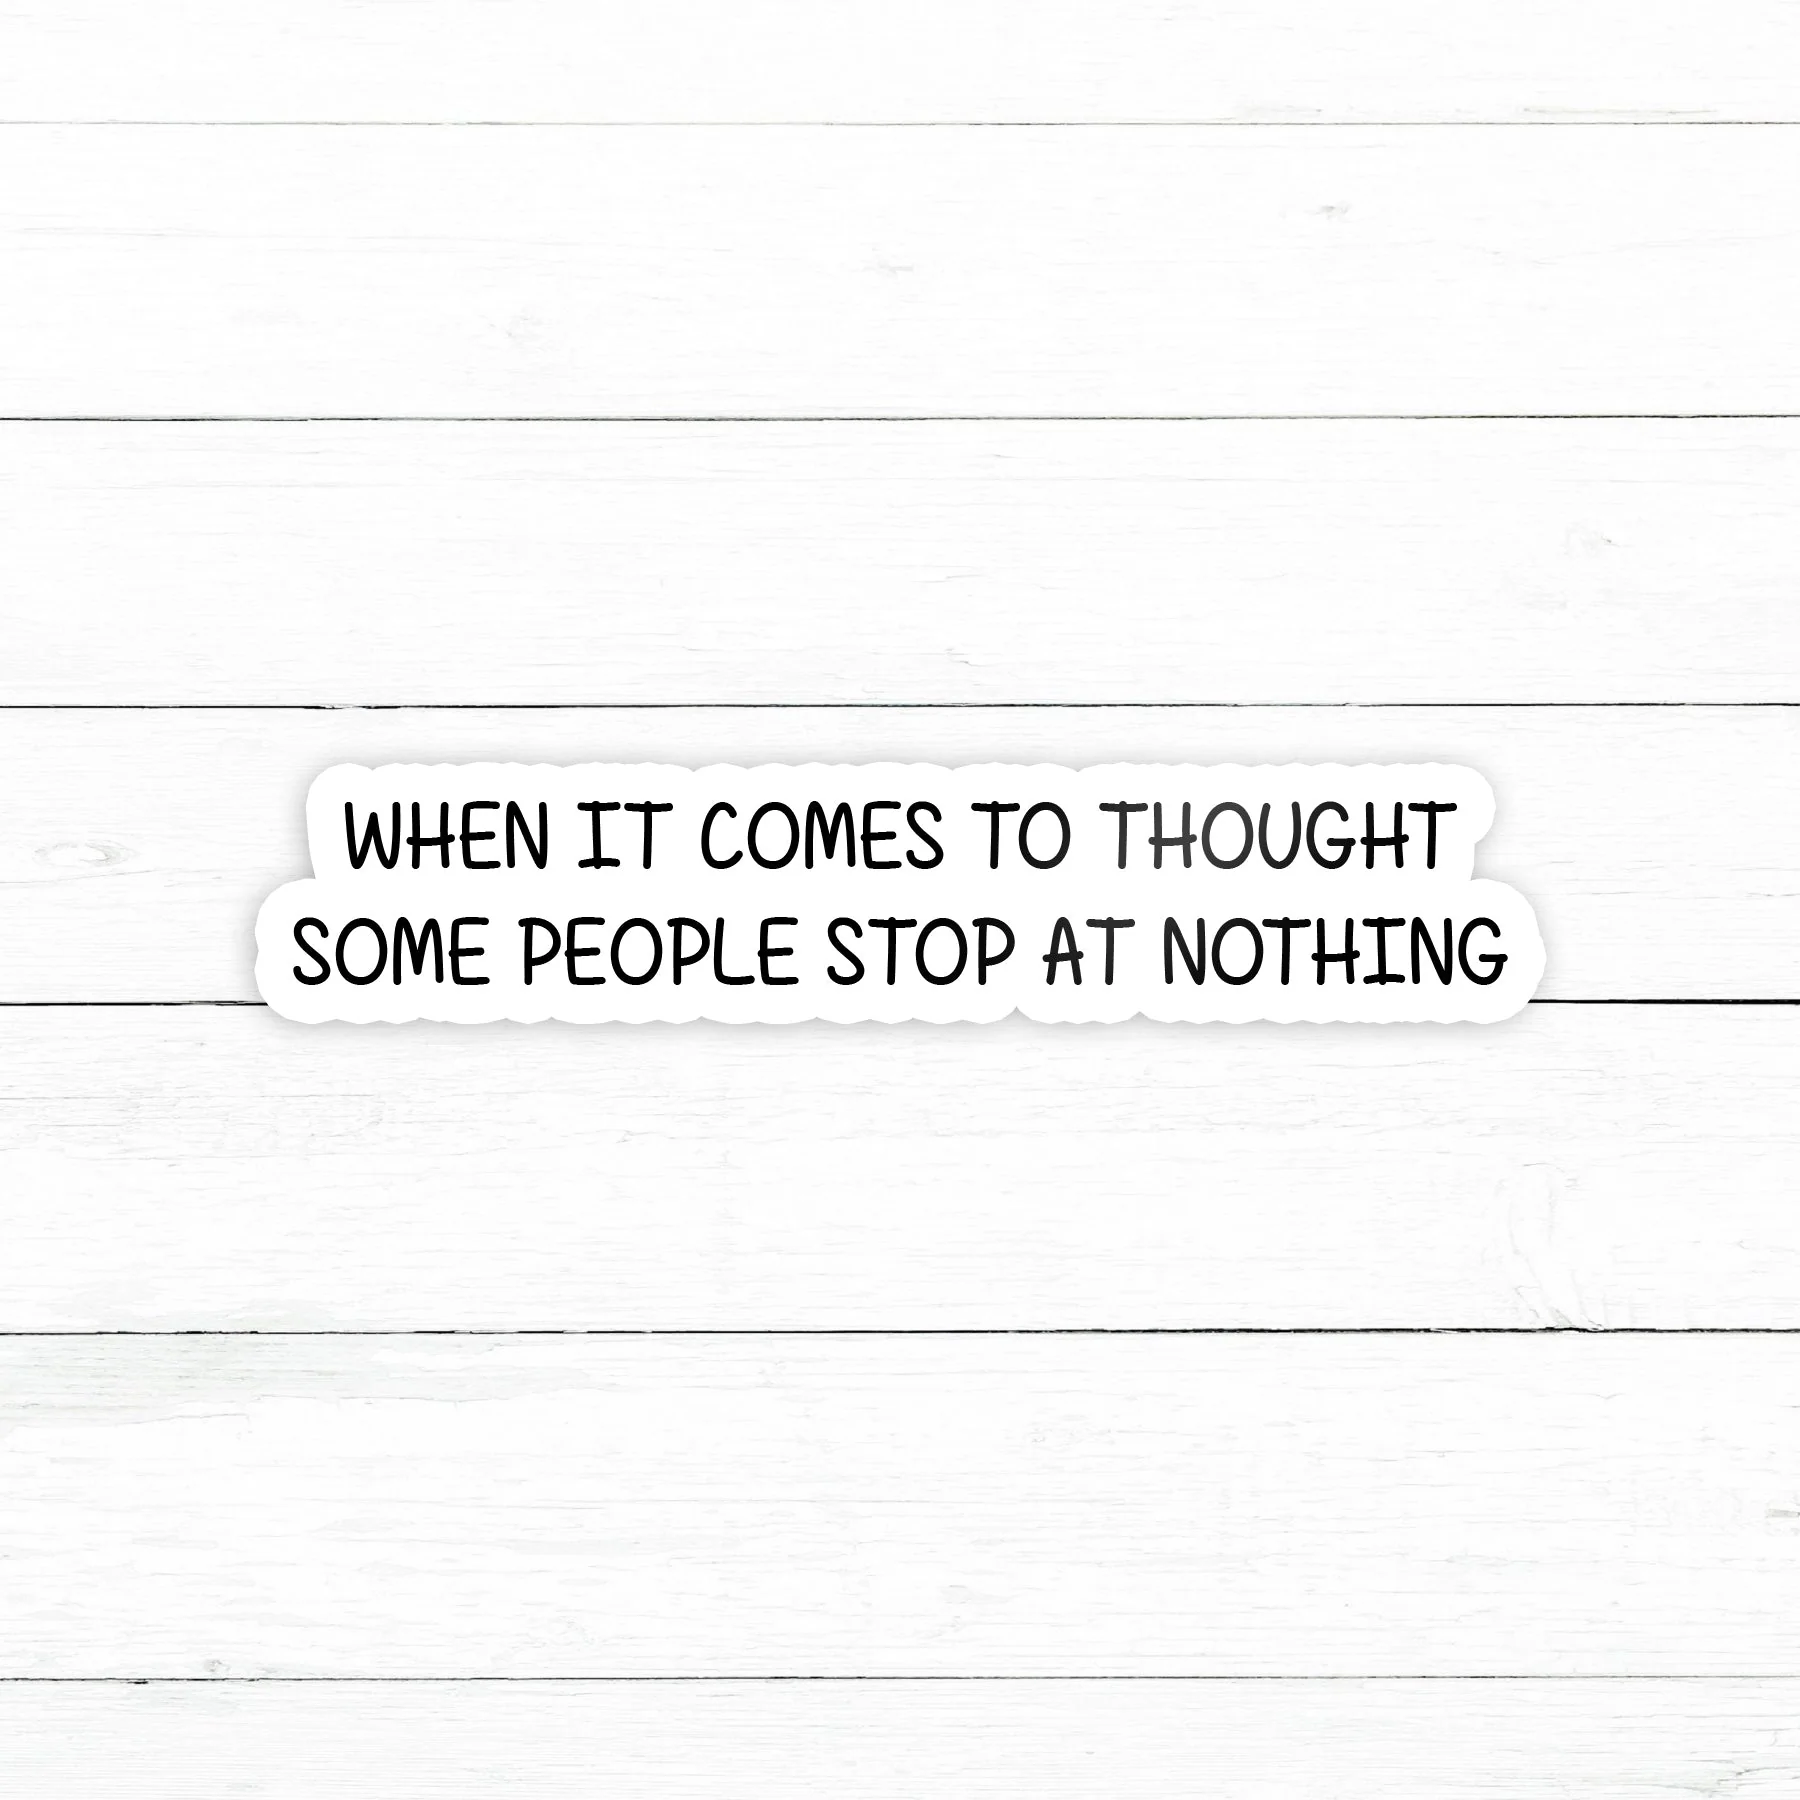 WHEN IT COMES TO THOUGHT
SOME PEOPLE STOP AT NOTHING